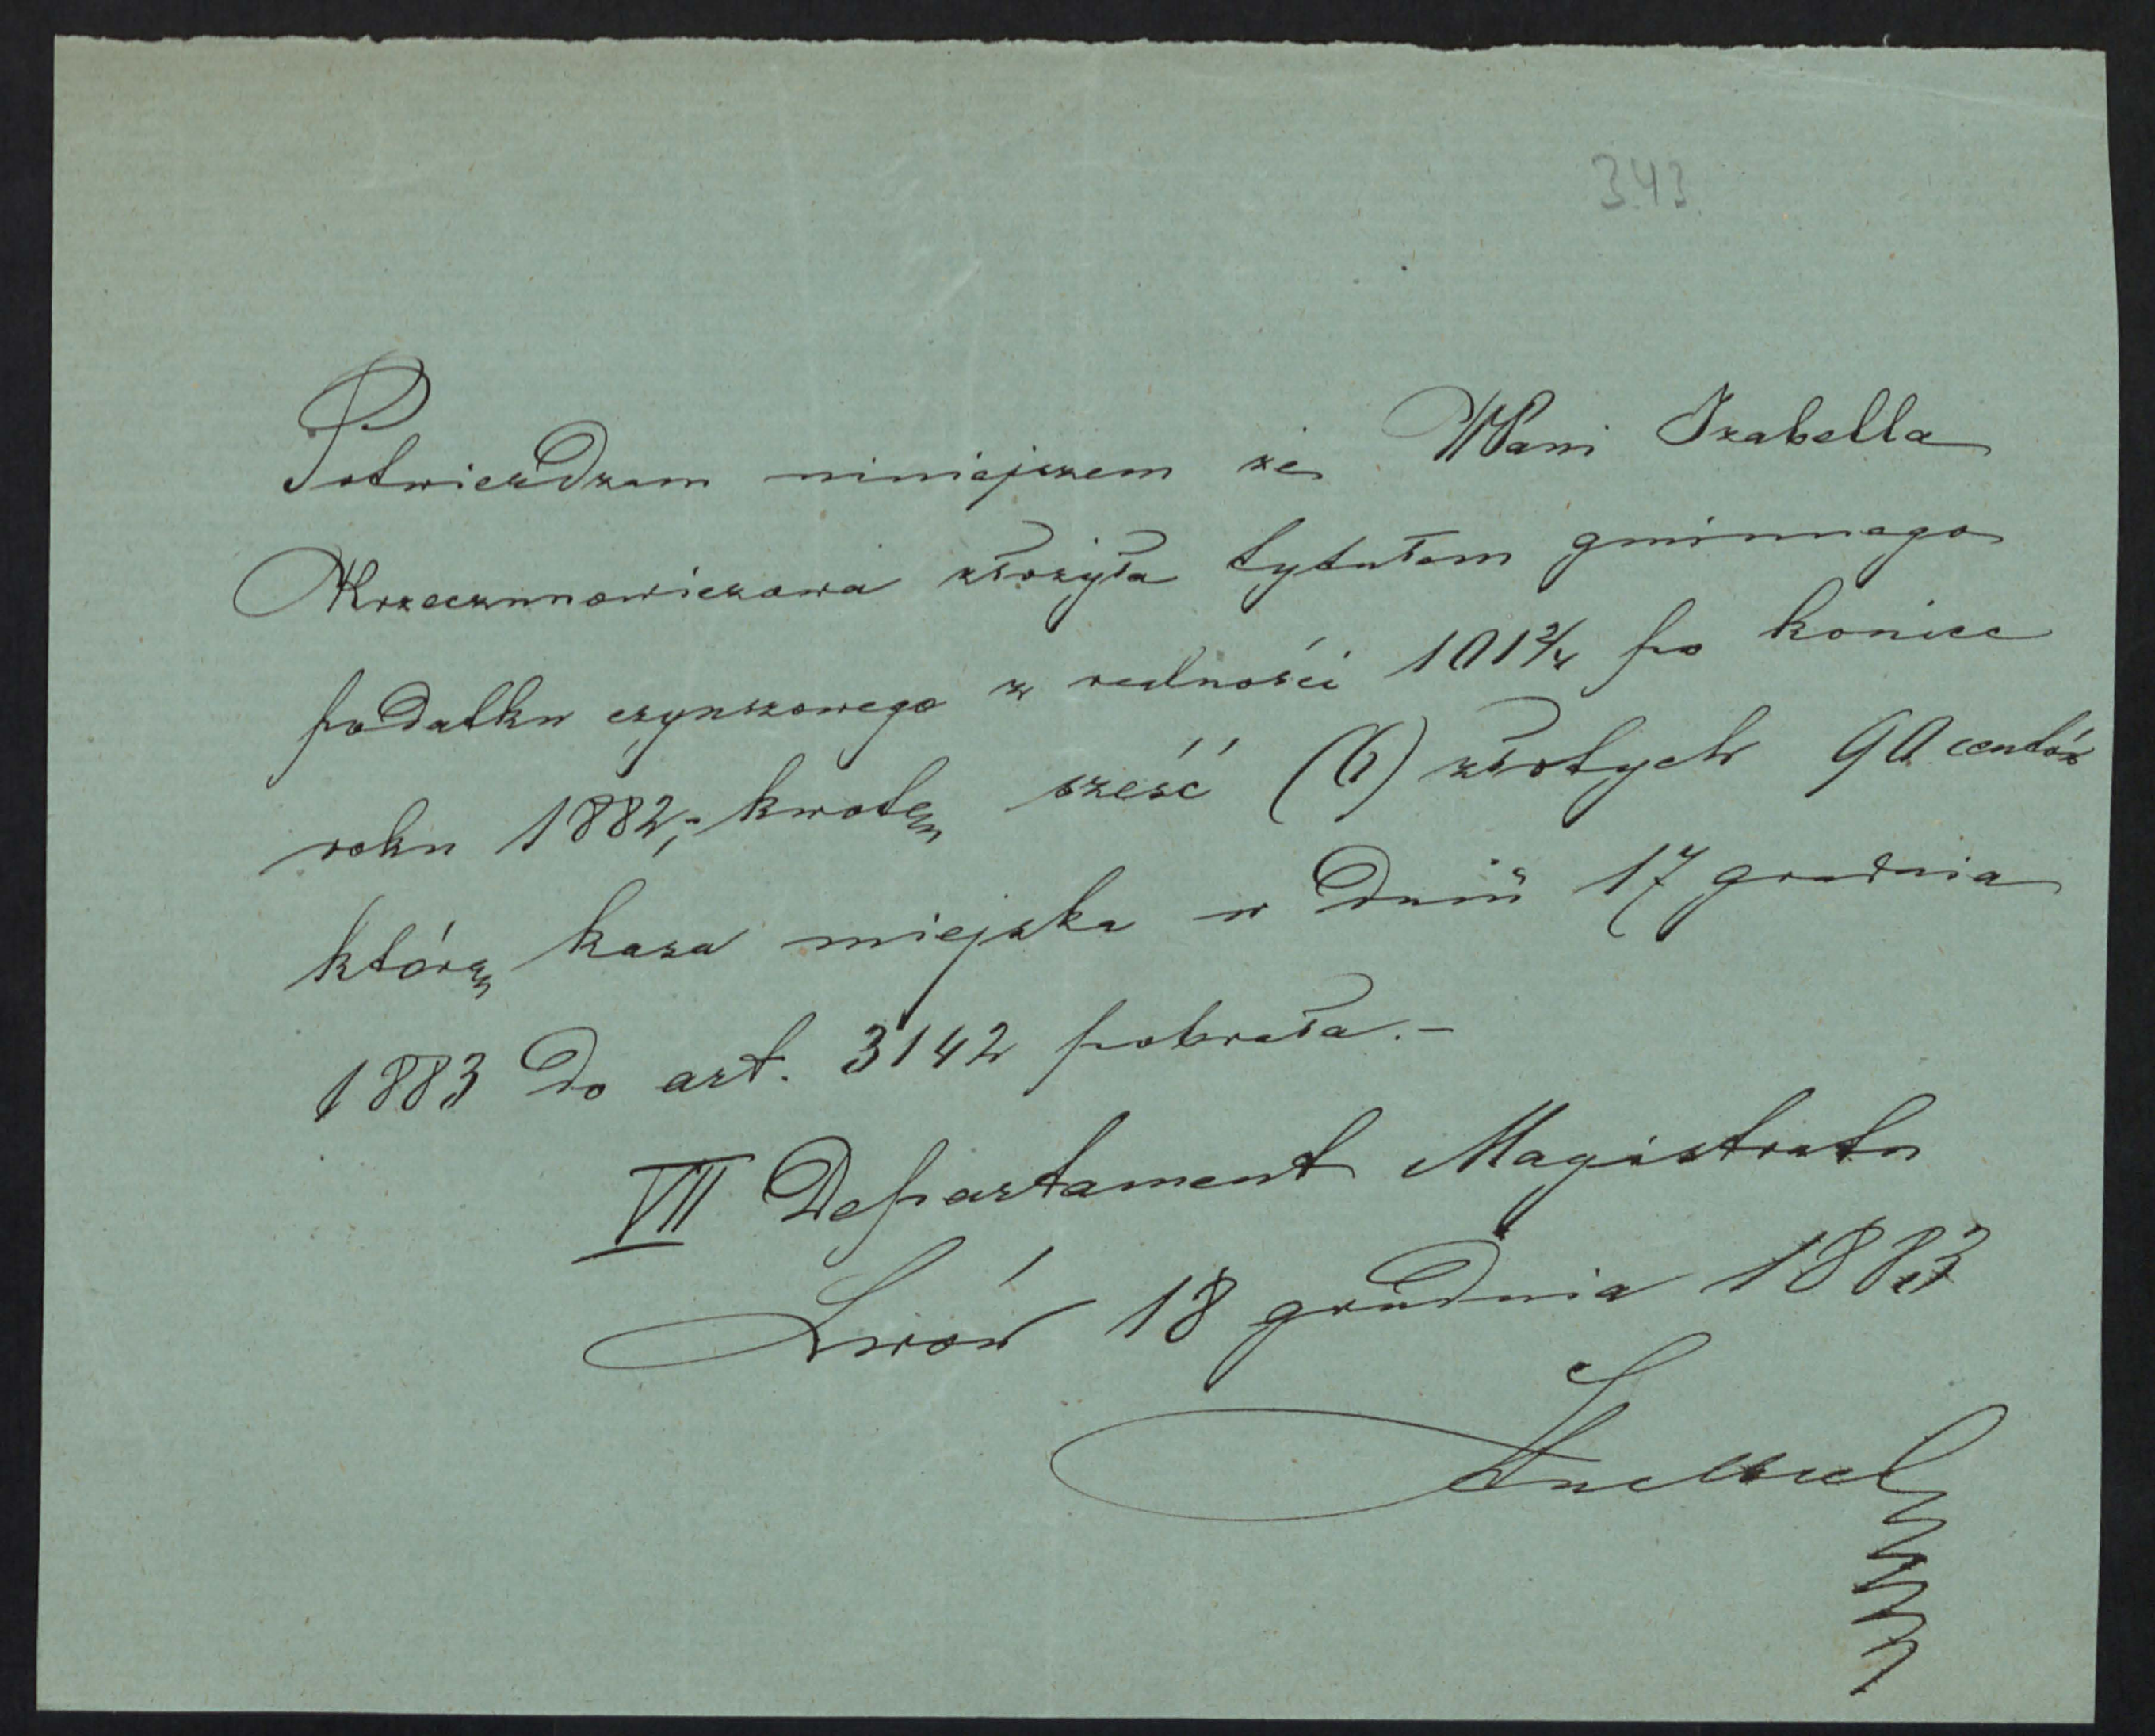 343
Potwierdzam niniejszem że WPani Izabella
Krzeczunowiczowa złożyła tytułem gminnego
podatku czynszowego z realności 101 2/4 po koniec
roku 1882,- kwotę sześć (6) złotych 90 centów
którą kasa miejska w dniu 17 grudnia
1883 do art. 3142 pobrała.-
VII Departament Magistratu
Lwów 18 grudnia 1883